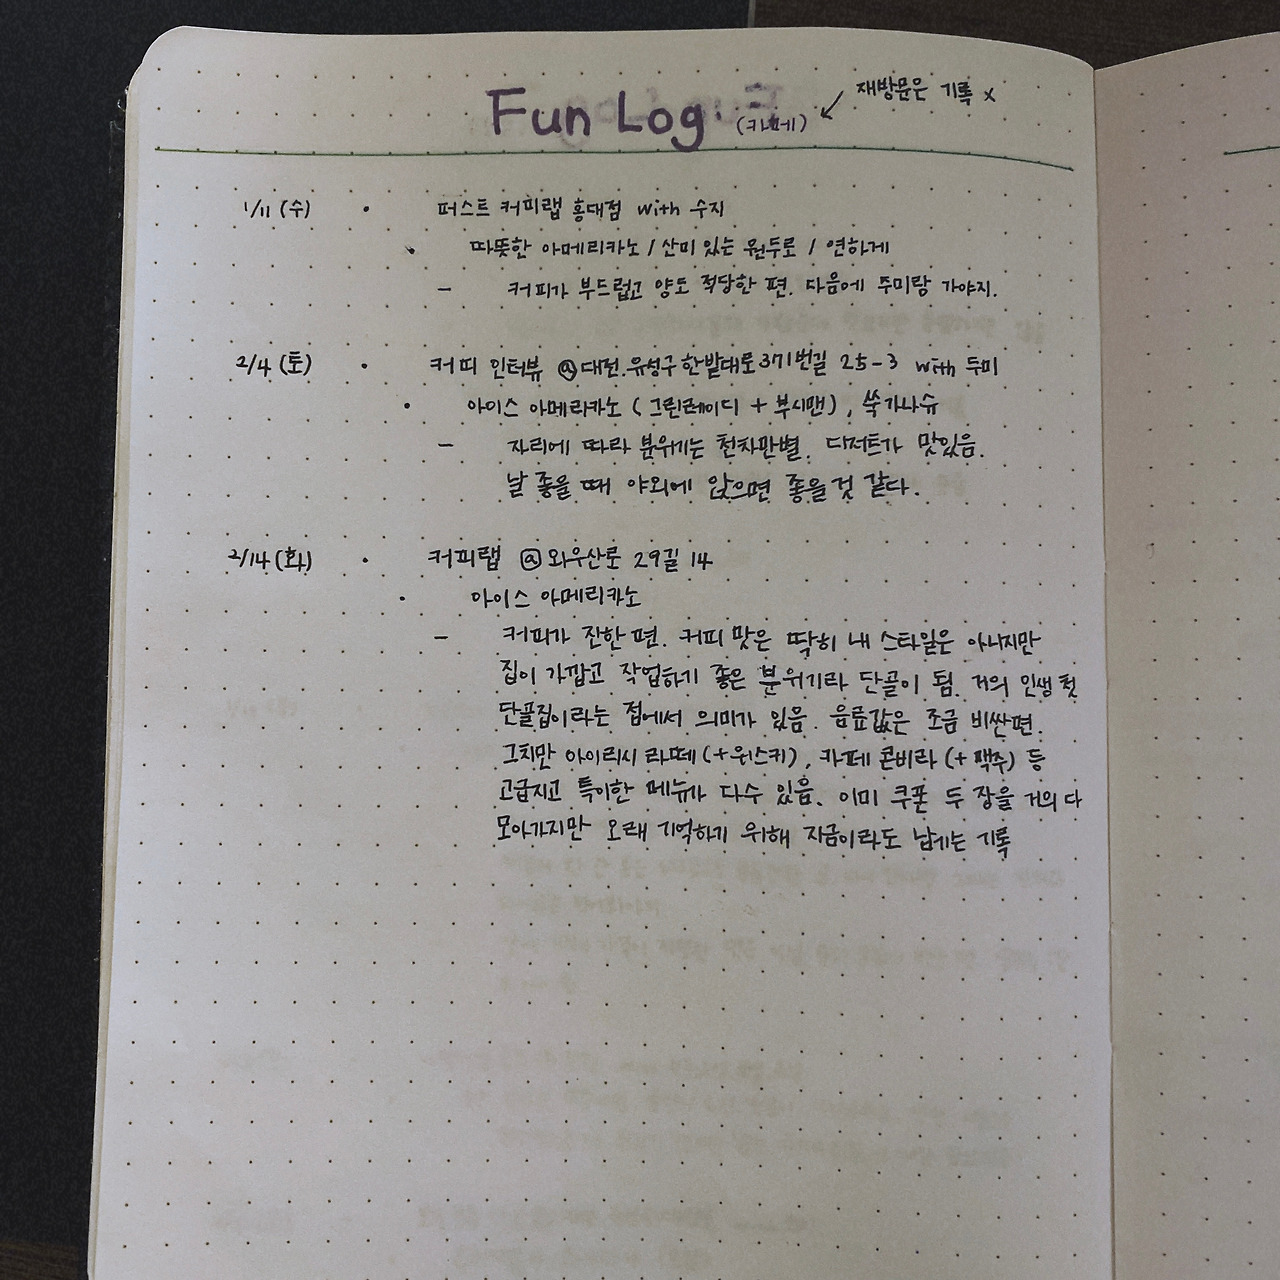 Fun Log. (카페) ↙ 재방문은 기록 x
1/11 (수) • 퍼스트 커피랩 홍대점 with 수지
• 따뜻한 아메리카노 / 산미 있는 원두로 / 연하게
– 커피가 부드럽고 양도 적당한 편. 다음에 주미랑 가야지.
2/4 (토) • 커피 인터뷰 @ 대전.유성구 한밭대로371번길 25-3 with 두미
• 아이스 아메리카노 (그린레이디 + 부시맨), 쑥가나슈
– 자리에 따라 분위기는 천차만별. 디저트가 맛있음.
날 좋을 때 야외에 앉으면 좋을 것 같다.
2/14 (화) • 커피랩 @ 와우산로 29길 14
• 아이스 아메리카노
– 커피가 진한 편. 커피 맛은 딱히 내 스타일은 아니지만
집이 가깝고 작업하기 좋은 분위기라 단골이 됨. 거의 인생 첫
단골집이라는 점에서 의미가 있음. 음료값은 조금 비싼편.
그치만 아이리시 라떼 (+위스키), 카페 콘비라 (+ 맥주) 등
고급지고 특이한 메뉴가 다수 있음. 이미 쿠폰 두 장을 거의 다
모아가지만 오래 기억하기 위해 지금이라도 남기는 기록